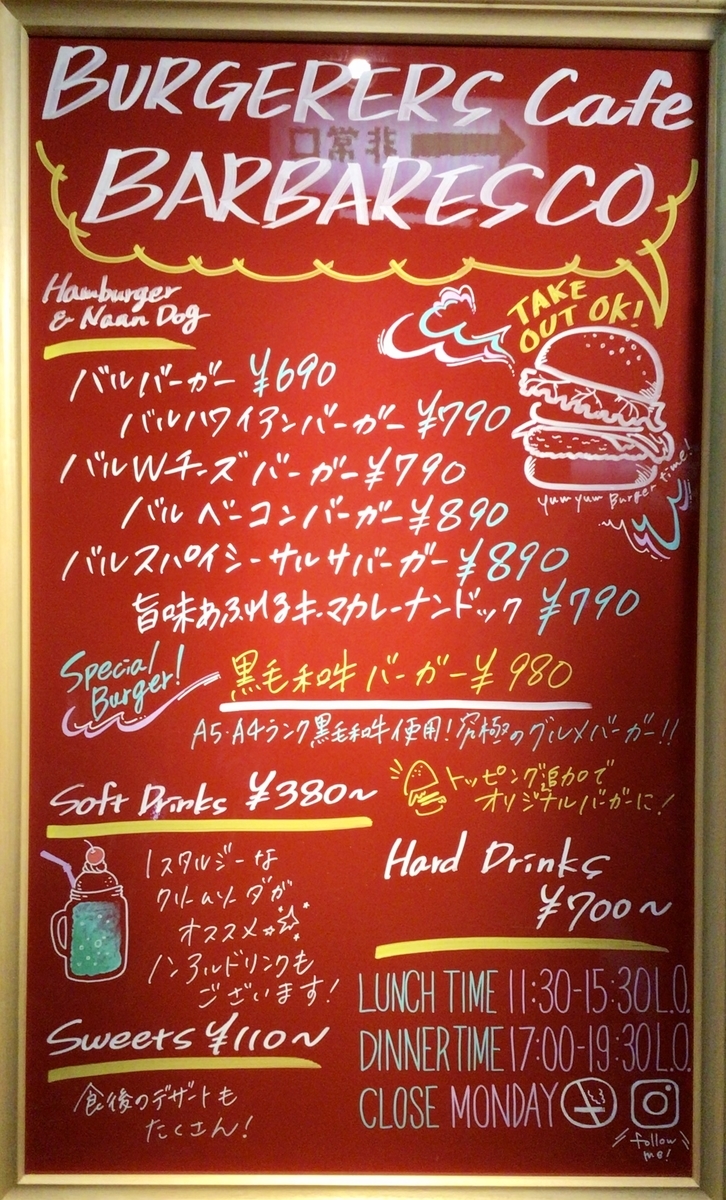 BURGERERS Cafe
BARBARESCO
Hamburger
& Naan Dog
TAKE
OUT OK!
バルバーガー ¥690
バルハワイアンバーガー ¥790
バルWチーズバーガー ¥790
yum yum Burger time!
バルベーコンバーガー ¥890
バルスパイシーサルサバーガー ¥890
旨味あふれるキーマカレーナンドック ¥790
Special
Burger!
黒毛和牛バーガー ¥980
A5・A4ランク黒毛和牛使用!究極のグルメバーガー!!
Soft Drinks ¥380〜
トッピング追加で
オリジナルバーガーに!
ノスタルジーな
クリームソーダが
オススメ
ノンアルドリンクも
ございます!
Hard Drinks
¥700〜
Sweets ¥110〜
食後のデザートも
たくさん!
LUNCH TIME 11:30-15:30 L.O.
DINNER TIME 17:00-19:30 L.O.
CLOSE MONDAY
follow
me!
非常口